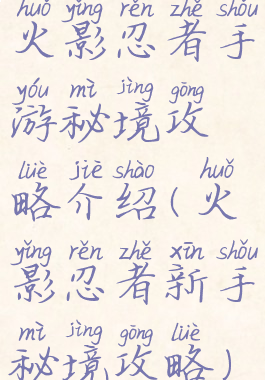 huǒ yǐng rěn zhě shǒu
火影忍者手
yóu mì jìng gōng
游秘境攻
lüè jiè shào huǒ
略介绍(火
yǐng rěn zhě xīn shǒu
影忍者新手
mì jìng gōng lüè
秘境攻略)